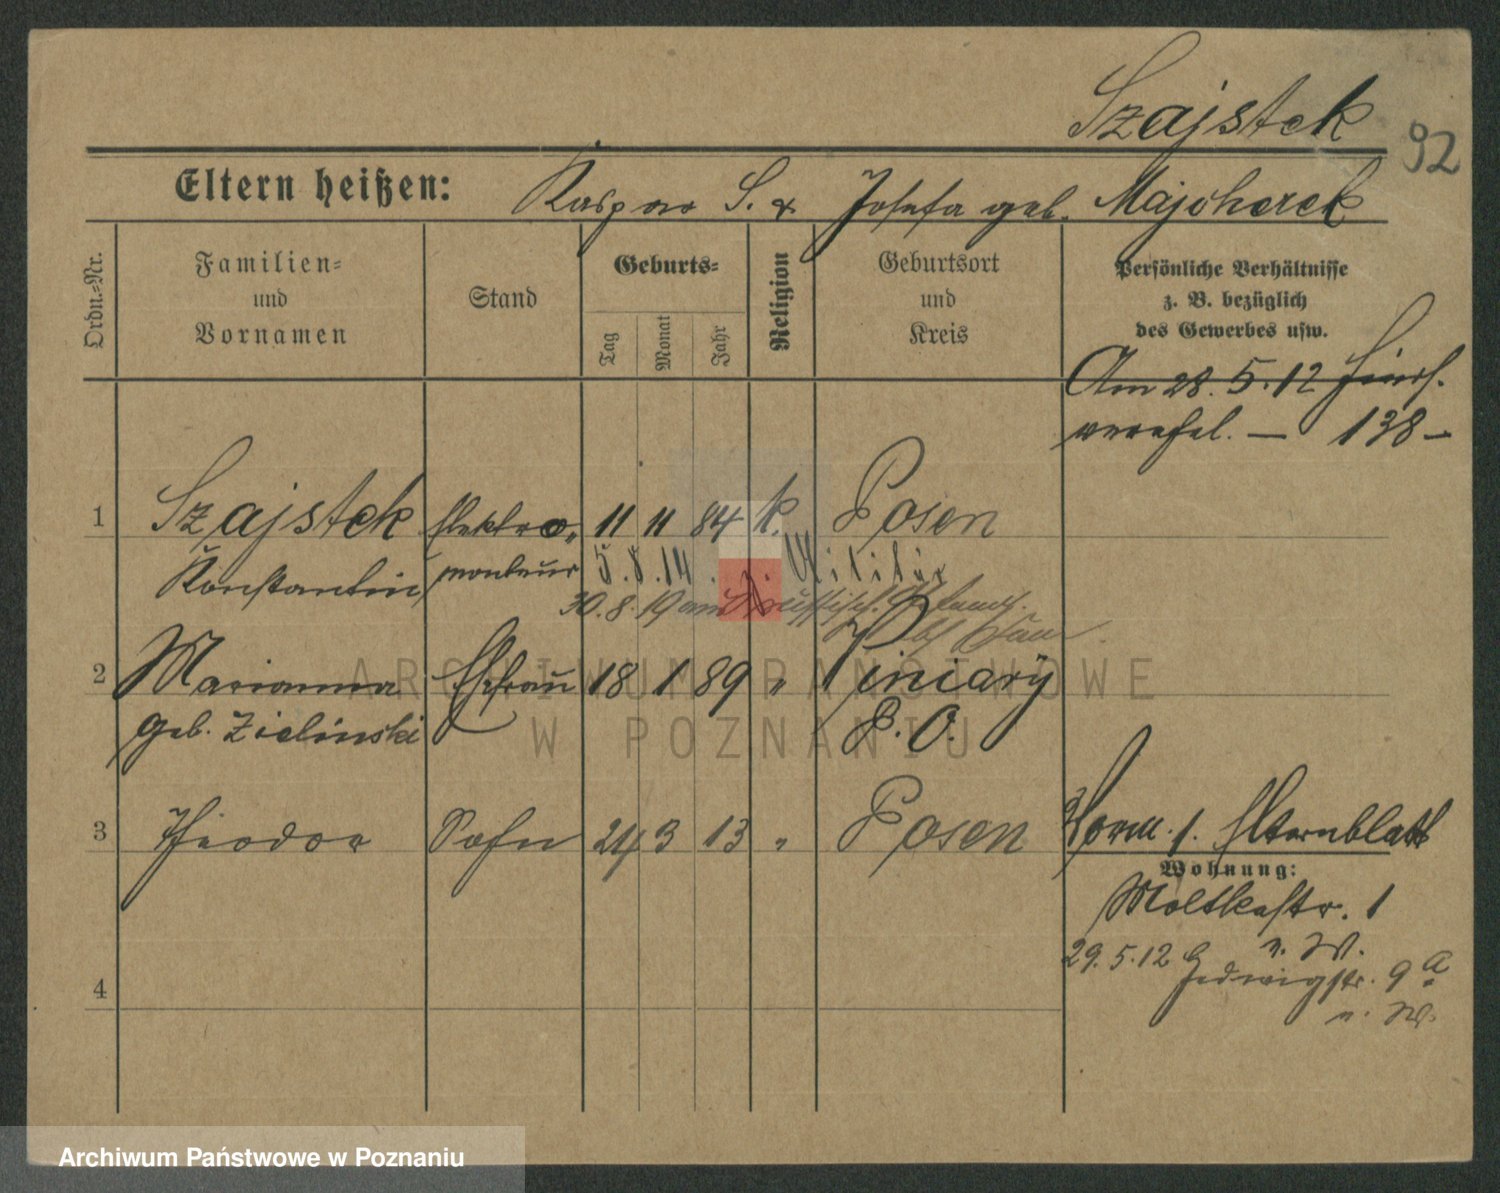 Szajstek
92
Eltern heißen: Kaspar S. & Josefa geb. Majcherek
Ordn.-Nr.
Familien-
und
Vornamen
Stand
Geburts-
Tag
Monat
Jahr
Religion
Geburtsort
und
Kreis
Persönliche Verhältnisse
z. B. bezüglich
des Gewerbes usw.
Am 28.5.12 hiers.
verehel. — 138 —
1 Szajstek Elektro- 11 11 84 k. Posen
Konstantin monteur 5.8.14. Militär
30.8.19 aus
2 Marianna Ehefrau 18 1 89 " Piniary
geb. Zielinski P. O.
3 Theodor Sohn 24 3 13 " Posen
Vorm. s. Elternblatt
Wohnung:
Moltkestr. 1
n. W.
29.5.12 Hedwigstr. 9a
n. W.
4
ARCHIWUM PAŃSTWOWE
W POZNANIU
Archiwum Państwowe w Poznaniu